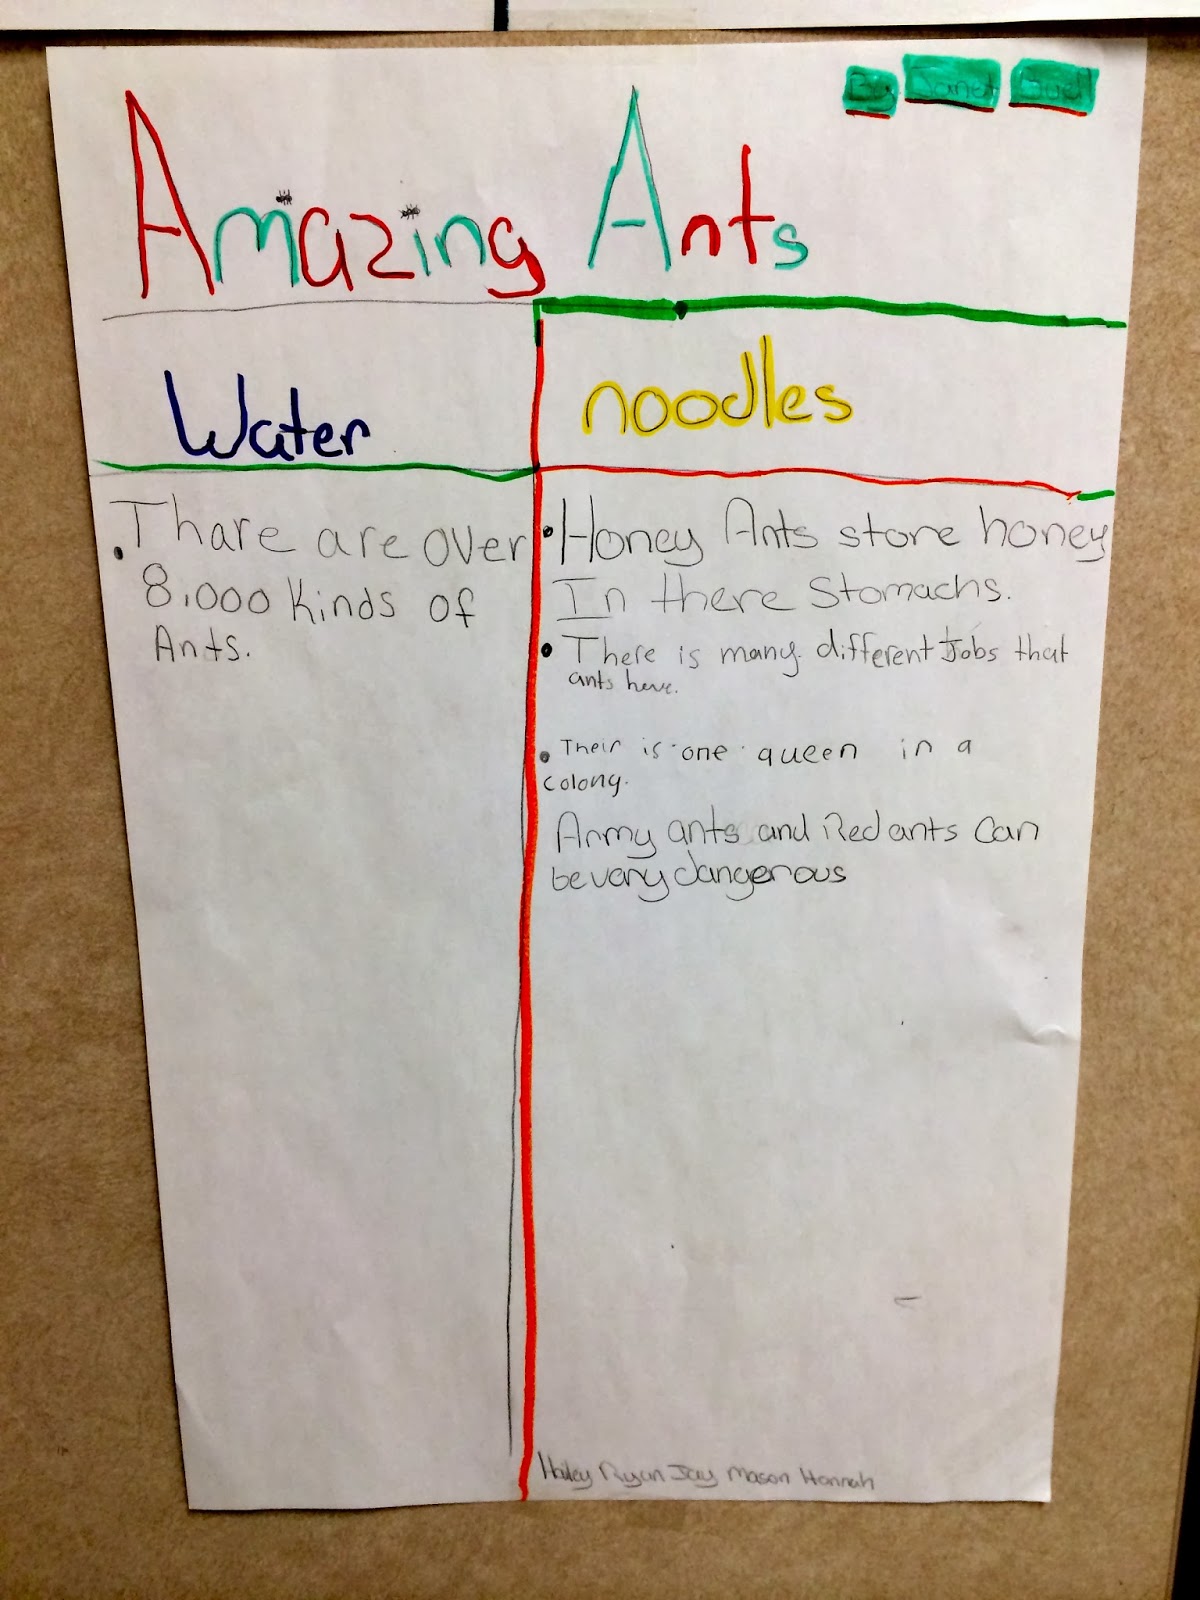 By Janet Buell
Amazing Ants
Water
noodles
Thare are over
8,000 Kinds of
Ants.
Honey Ants store honey
In there Stomachs.
There is many different Jobs that
ants have.
Their is one queen in a
colony.
Army ants and Red ants can
be very dangerous
Hailey Ryan Jay Mason Hannah